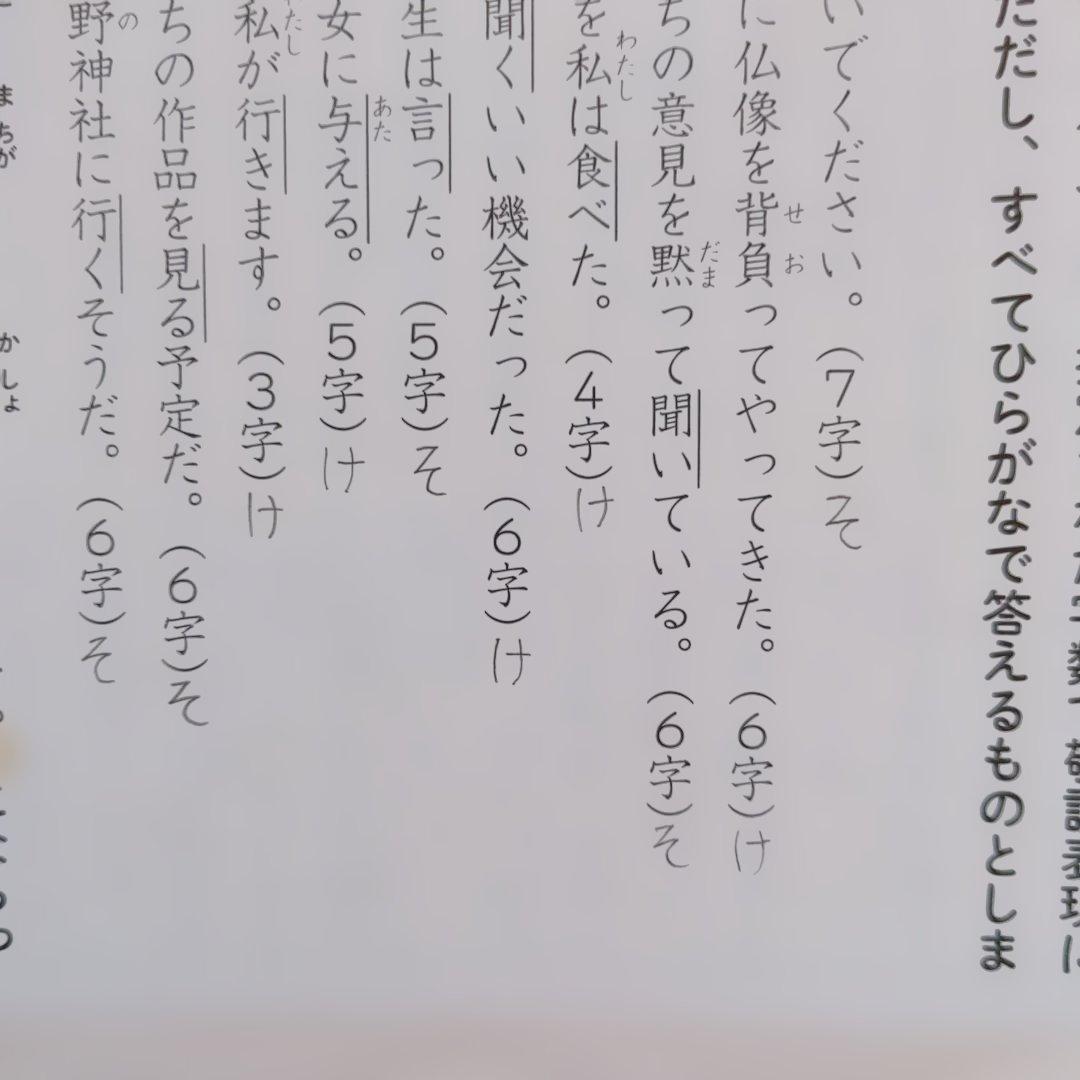 だし、すべてひらがなで答えるものとしま
いでください。(7字)そ
に仏像を背負ってやってきた。(6字)け
せお
ちの意見を黙って聞いている。(6字)そ
だま
を私は食べた。(4字)け
わたし
聞くいい機会だった。(6字)け
生は言った。(5字)そ
女に与える。(5字)け
あた
私が行きます。(3字)け
たし
ちの作品を見る予定だ。(6字)そ
野神社に行くそうだ。(6字)そ
の
まちが
かしょ